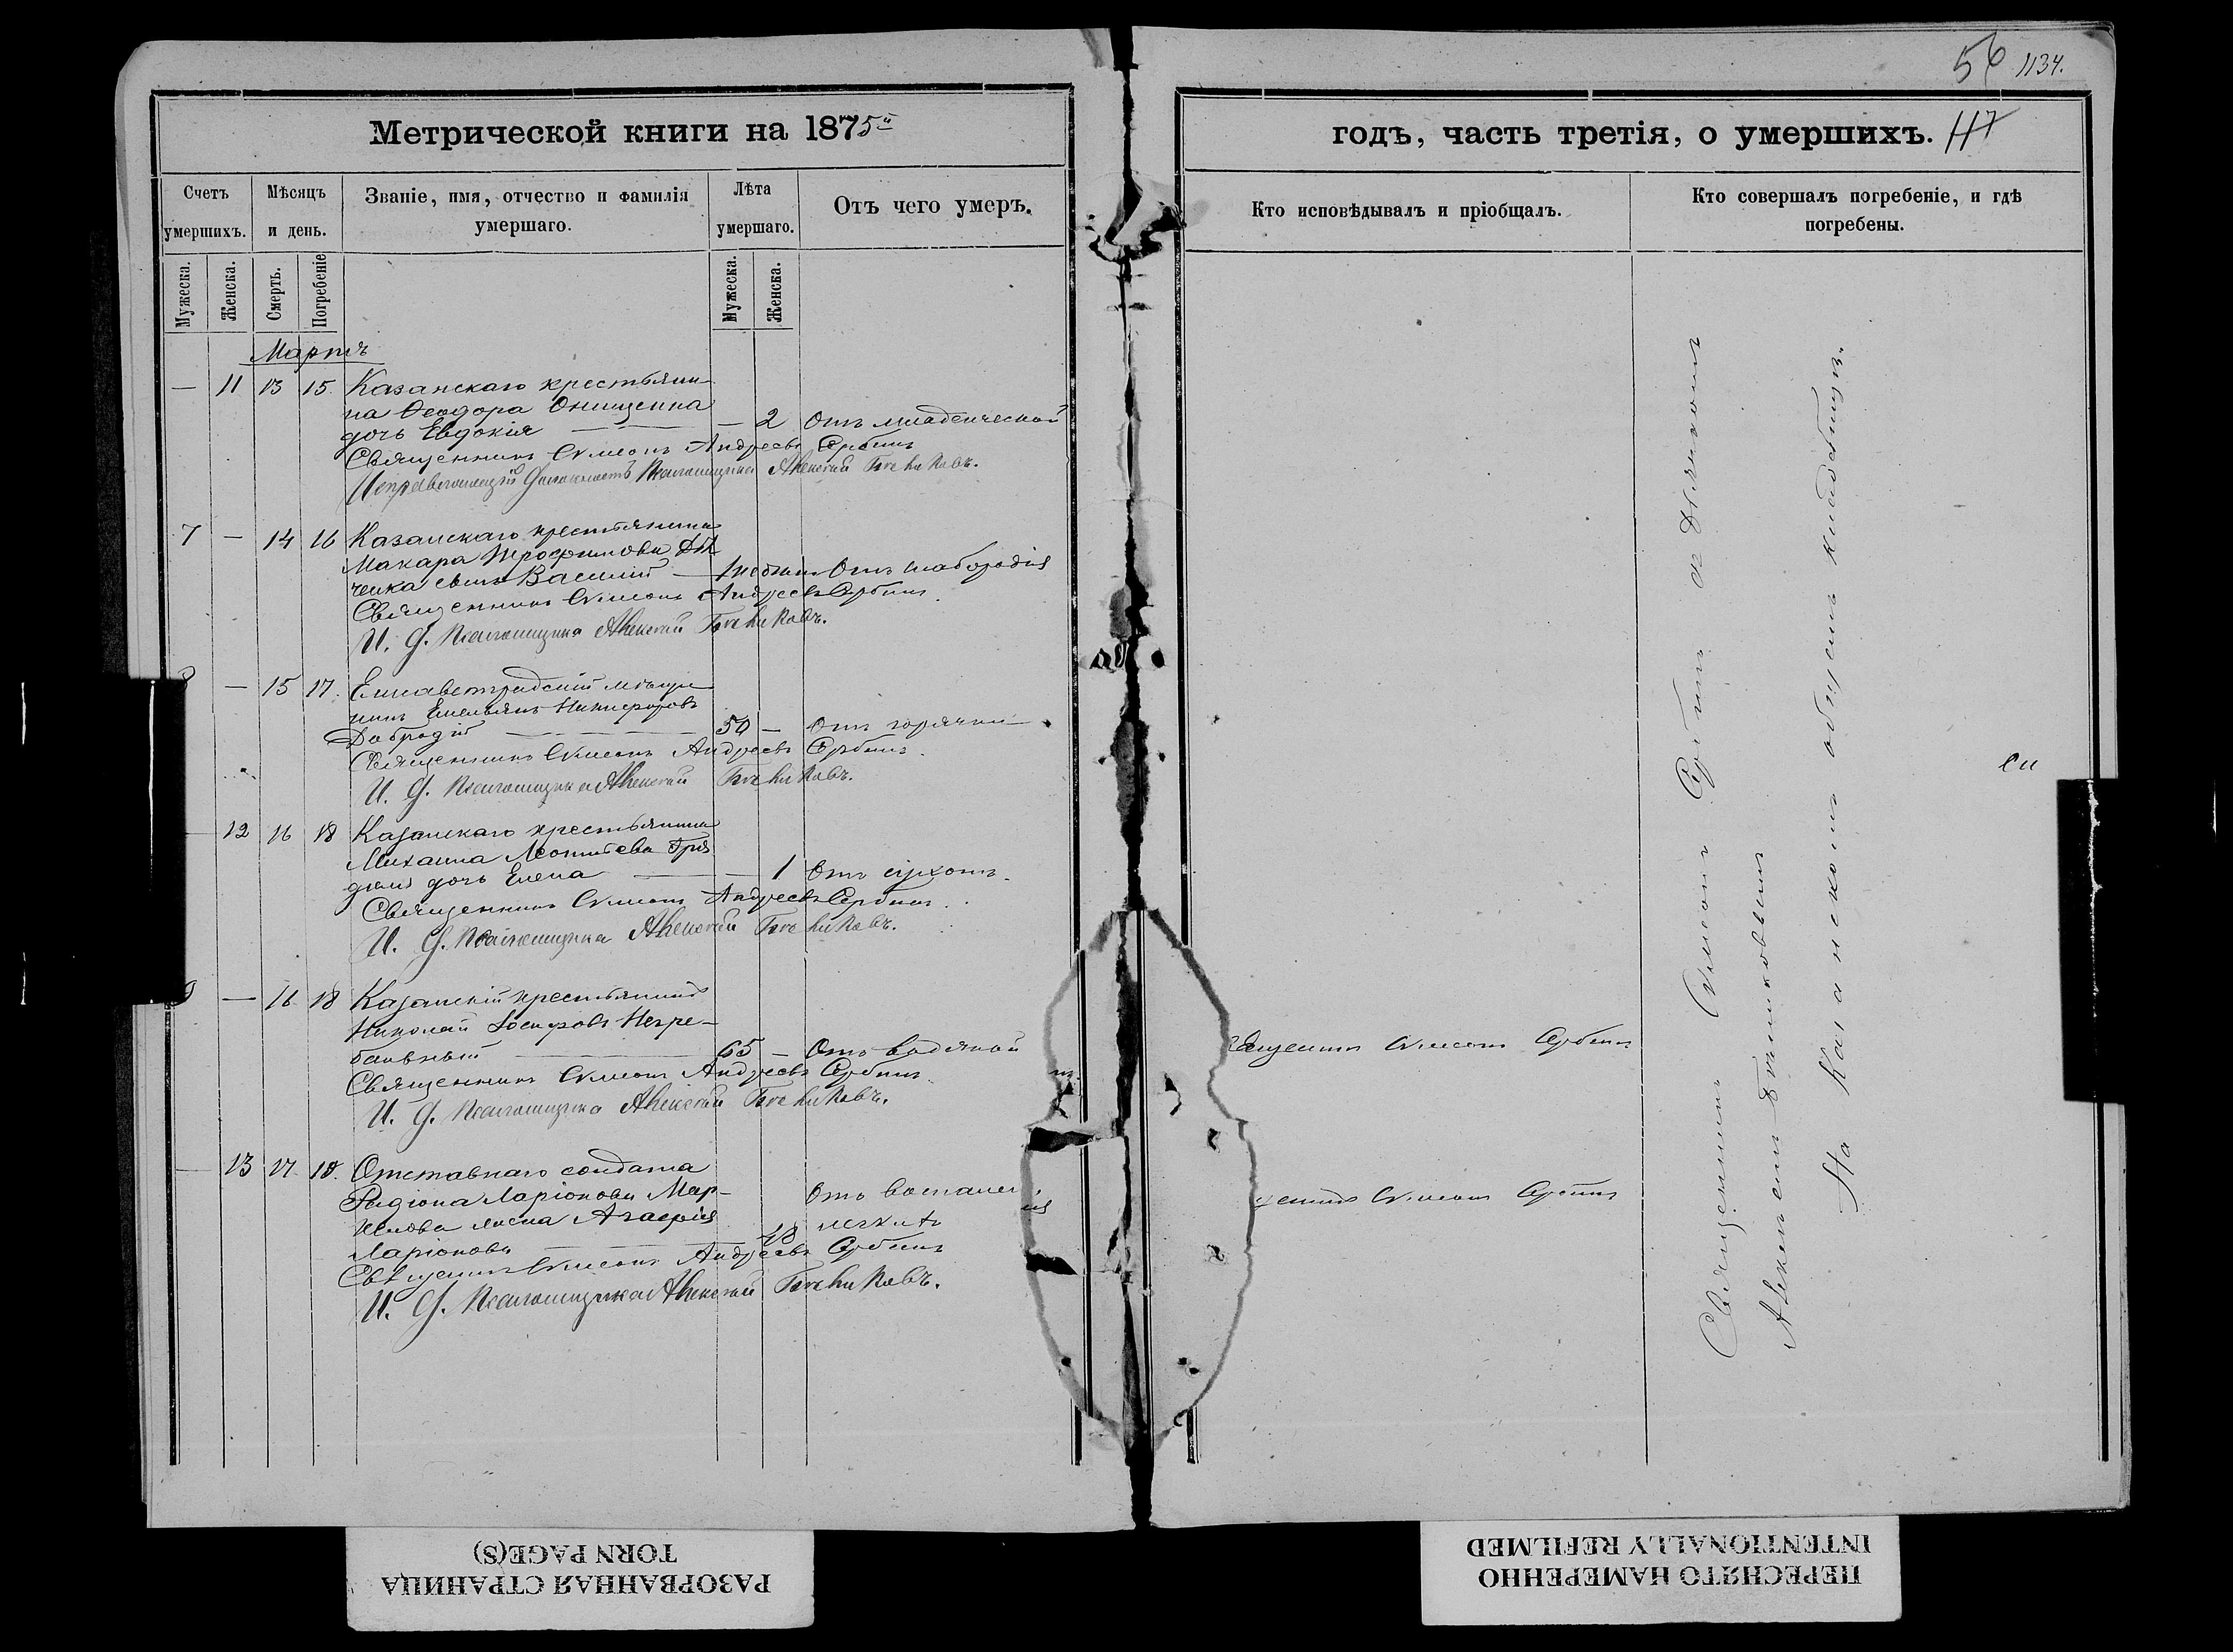 56 1134.
Метрической книги на 1875й
годъ, часть третія, о умершихъ. 117
Счетъ умершихъ.
Мѣсяцъ и день.
Званіе, имя, отчество и фамилія умершаго.
Лѣта умершаго.
Отъ чего умеръ.
Кто исповѣдывалъ и пріобщалъ.
Кто совершалъ погребеніе, и гдѣ погребены.
Мужеска. Женска. Смерть. Погребеніе Мужеска. Женска.
Мартъ
— 11 13 15. Казанскаго крестьяни-
на Ѳеодора Онищенка
дочь Евдокія — — 2 Отъ младенческой
Священникъ Симеонъ Андреевъ Сербинъ
Исправляющій должность Псаломщика Алексѣй
7 — 14 16 Казанскаго крестьянина
Макара Трофимова
ченка сынъ Василій — 1 недѣли Отъ слабородія
Священникъ Симеонъ Андреевъ Сербинъ.
И. д. Псаломщика Алексѣй
— 15 17. Елисаветградскій мѣща-
нинъ Емельянъ Никифоровъ
Добродій — 50 — Отъ горячки
Священникъ Симеонъ Андреевъ Сербинъ.
И. д. Псаломщика Алексѣй
12 16 18 Казанскаго крестьянина
Михаила Леонтіева
дочь Елена — — 1 Отъ сухотъ.
Священникъ Симеонъ Андреевъ Сербинъ.
И. д. Псаломщика Алексѣй
9 — 16 18 Казанскій крестьянинъ
Николай Іосифовъ Негре-
бальный — 65 — Отъ водяной
Священникъ Симеонъ Андреевъ Сербинъ.
И. д. Псаломщика Алексѣй
Симеонъ Сербинъ
— 13 17 18. Отставнаго солдата
Радіона Ларіонова Мар-
жена Агафія
Ларіонова — 48 Отъ воспаленія легкихъ
Священникъ Симеонъ Андреевъ Сербинъ
И. д. Псаломщика Алексѣй
Симеонъ Сербинъ
Священникъ Симеонъ Сербинъ съ Дьячкомъ
Алексѣемъ
На Казанскомъ общемъ кладбищѣ.
РАЗОРВАННАЯ СТРАНИЦА
TORN PAGE(S)
ПЕРЕСНЯТО НАМЕРЕННО
INTENTIONALLY REFILMED